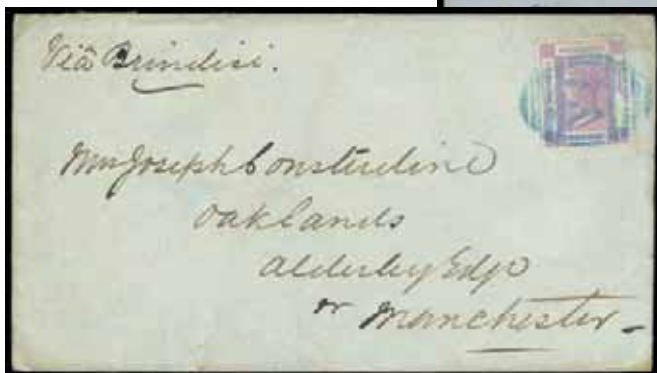 Viâ Brindisi.
Mrs Joseph Consterdine
Oaklands
Alderley Edge
nr Manchester